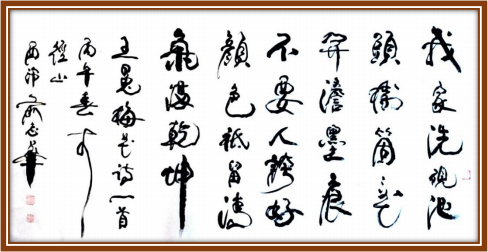 我家洗硯池
頭樹箇〻花
開澹墨痕
不要人誇好
顏色祇留清
氣滿乾坤
王冕梅花詩一首
丙午春于
徑山